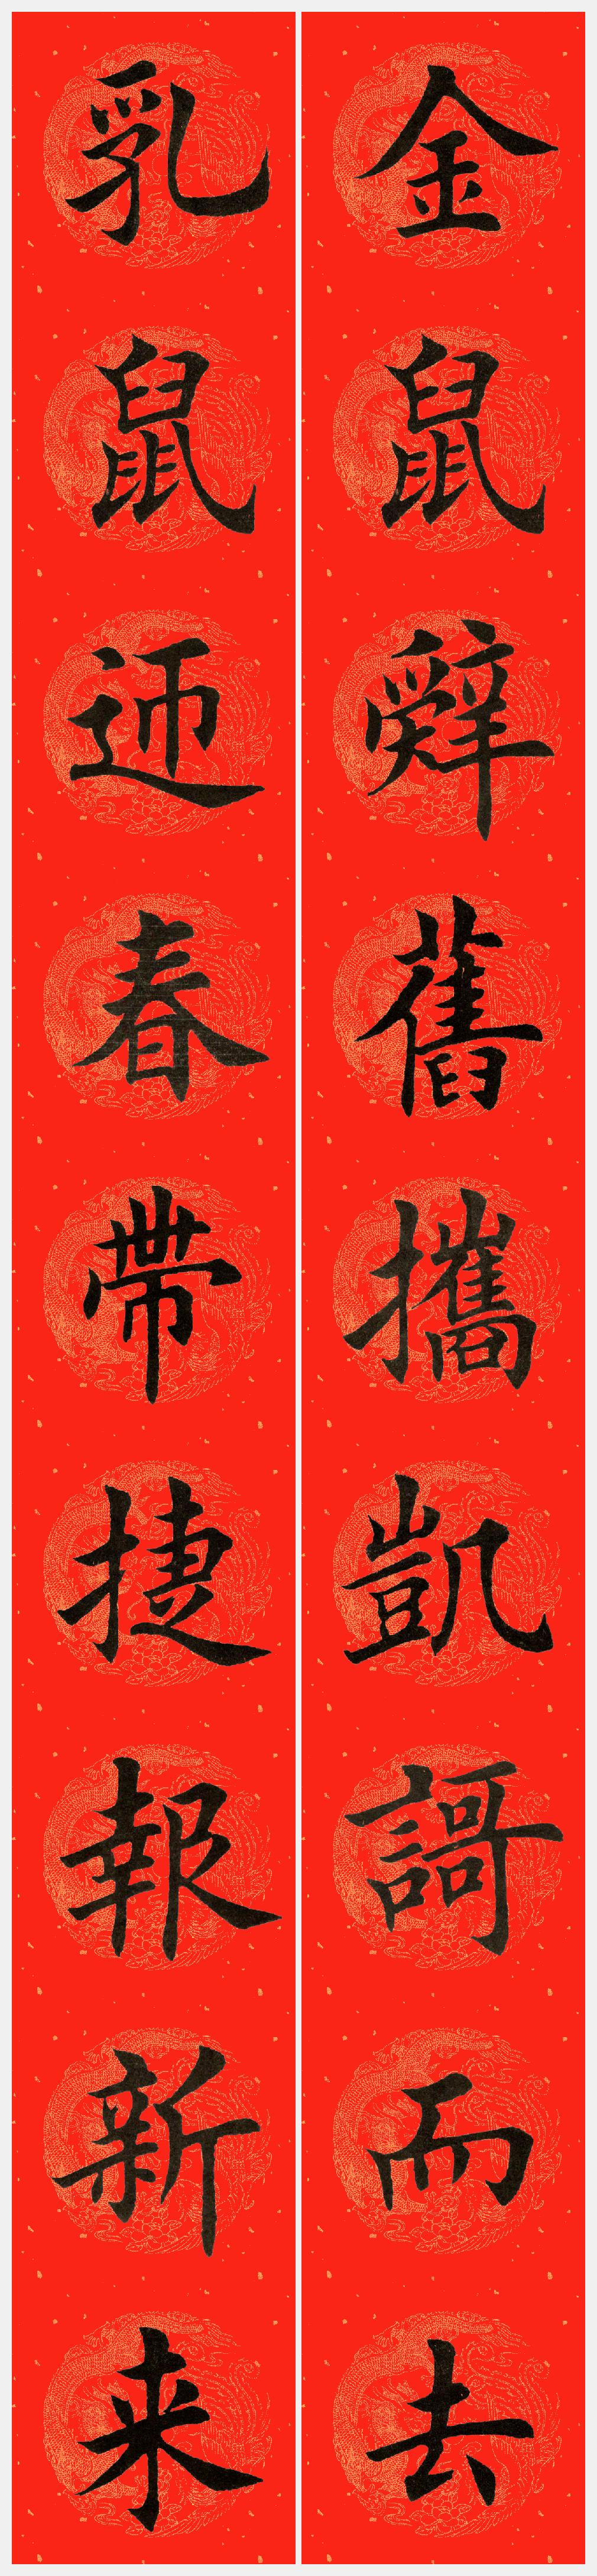 金鼠辤舊攜凱謌而去
乳鼠迊春帶捷報新来